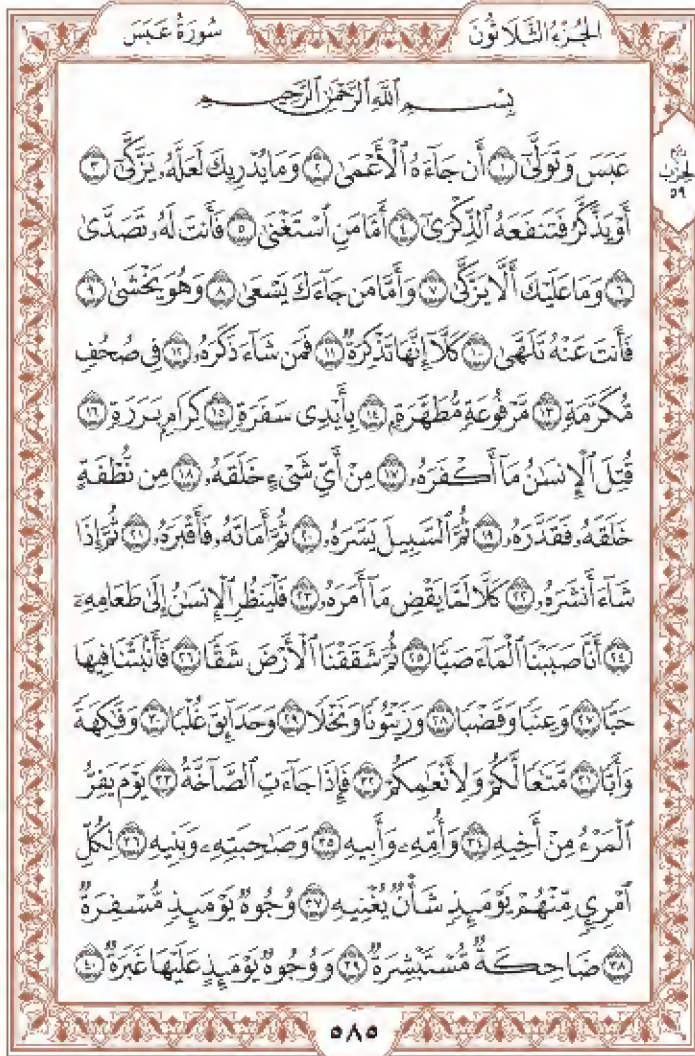 سُورَةُ عَبَسَ
الجُزْءُ الثَّلَاثُونَ
بِسْمِ ٱللَّهِ ٱلرَّحْمَٰنِ ٱلرَّحِيمِ
رُبْع
الحِزْبِ
٥٩
عَبَسَ وَتَوَلَّىٰٓ ١ أَن جَآءَهُ ٱلْأَعْمَىٰ ٢ وَمَا يُدْرِيكَ لَعَلَّهُۥ يَزَّكَّىٰٓ ٣
أَوْ يَذَّكَّرُ فَتَنفَعَهُ ٱلذِّكْرَىٰٓ ٤ أَمَّا مَنِ ٱسْتَغْنَىٰ ٥ فَأَنتَ لَهُۥ تَصَدَّىٰ
٦ وَمَا عَلَيْكَ أَلَّا يَزَّكَّىٰ ٧ وَأَمَّا مَن جَآءَكَ يَسْعَىٰ ٨ وَهُوَ يَخْشَىٰ ٩
فَأَنتَ عَنْهُ تَلَهَّىٰ ١٠ كَلَّآ إِنَّهَا تَذْكِرَةٌ ١١ فَمَن شَآءَ ذَكَرَهُۥ ١٢ فِى صُحُفٍ
مُّكَرَّمَةٍ ١٣ مَّرْفُوعَةٍ مُّطَهَّرَةٍۭ ١٤ بِأَيْدِى سَفَرَةٍ ١٥ كِرَامٍۭ بَرَرَةٍ ١٦
قُتِلَ ٱلْإِنسَٰنُ مَآ أَكْفَرَهُۥ ١٧ مِنْ أَىِّ شَىْءٍ خَلَقَهُۥ ١٨ مِن نُّطْفَةٍ
خَلَقَهُۥ فَقَدَّرَهُۥ ١٩ ثُمَّ ٱلسَّبِيلَ يَسَّرَهُۥ ٢٠ ثُمَّ أَمَاتَهُۥ فَأَقْبَرَهُۥ ٢١ ثُمَّ إِذَا
شَآءَ أَنشَرَهُۥ ٢٢ كَلَّا لَمَّا يَقْضِ مَآ أَمَرَهُۥ ٢٣ فَلْيَنظُرِ ٱلْإِنسَٰنُ إِلَىٰ طَعَامِهِۦٓ
٢٤ أَنَّا صَبَبْنَا ٱلْمَآءَ صَبًّا ٢٥ ثُمَّ شَقَقْنَا ٱلْأَرْضَ شَقًّا ٢٦ فَأَنۢبَتْنَا فِيهَا
حَبًّا ٢٧ وَعِنَبًا وَقَضْبًا ٢٨ وَزَيْتُونًا وَنَخْلًا ٢٩ وَحَدَآئِقَ غُلْبًا ٣٠ وَفَٰكِهَةً
وَأَبًّا ٣١ مَّتَٰعًا لَّكُمْ وَلِأَنْعَٰمِكُمْ ٣٢ فَإِذَا جَآءَتِ ٱلصَّآخَّةُ ٣٣ يَوْمَ يَفِرُّ
ٱلْمَرْءُ مِنْ أَخِيهِ ٣٤ وَأُمِّهِۦ وَأَبِيهِ ٣٥ وَصَٰحِبَتِهِۦ وَبَنِيهِ ٣٦ لِكُلِّ
ٱمْرِئٍ مِّنْهُمْ يَوْمَئِذٍ شَأْنٌ يُغْنِيهِ ٣٧ وُجُوهٌ يَوْمَئِذٍ مُّسْفِرَةٌ
٣٨ ضَاحِكَةٌ مُّسْتَبْشِرَةٌ ٣٩ وَوُجُوهٌ يَوْمَئِذٍ عَلَيْهَا غَبَرَةٌ ٤٠
٥٨٥